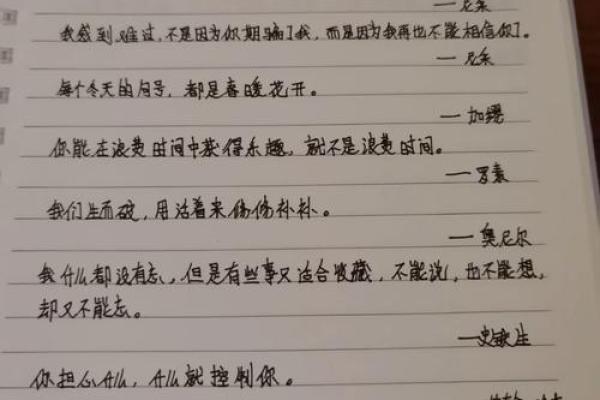 ——尼采
我感到难过，不是因为你欺骗了我，而是因为我再也不能相信你了。
——尼采
每个冬天的句号，都是春暖花开。
——加缪
你能在浪费时间中获得乐趣，就不是浪费时间。
——罗素
我们生而破，用活着来修修补补。
——奥尼尔
我什么都没有忘，但是有些事又适合收藏，不能说，也不能想，
却又不能忘。
——史铁生
你担心什么，什么就控制你。